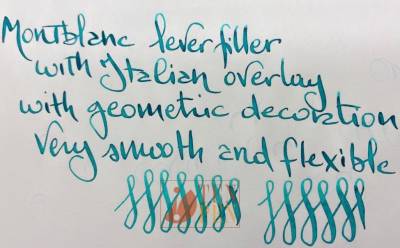 Montblanc lever filler
with Italian overlay
with geometric decoration
Very smooth and flexible